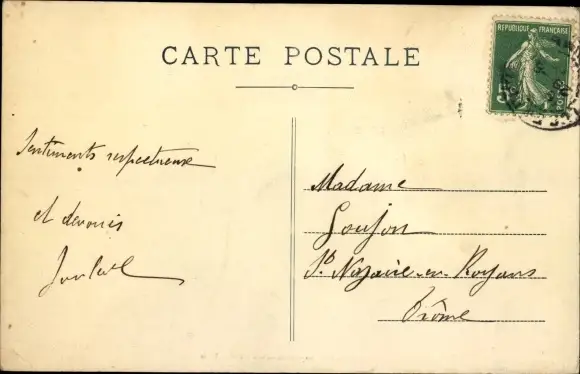 CARTE POSTALE
REPUBLIQUE FRANÇAISE
5
Sentiments respectueux
et dévoués
Madame
Goujon
St Nazaire-en-Royans
Drôme